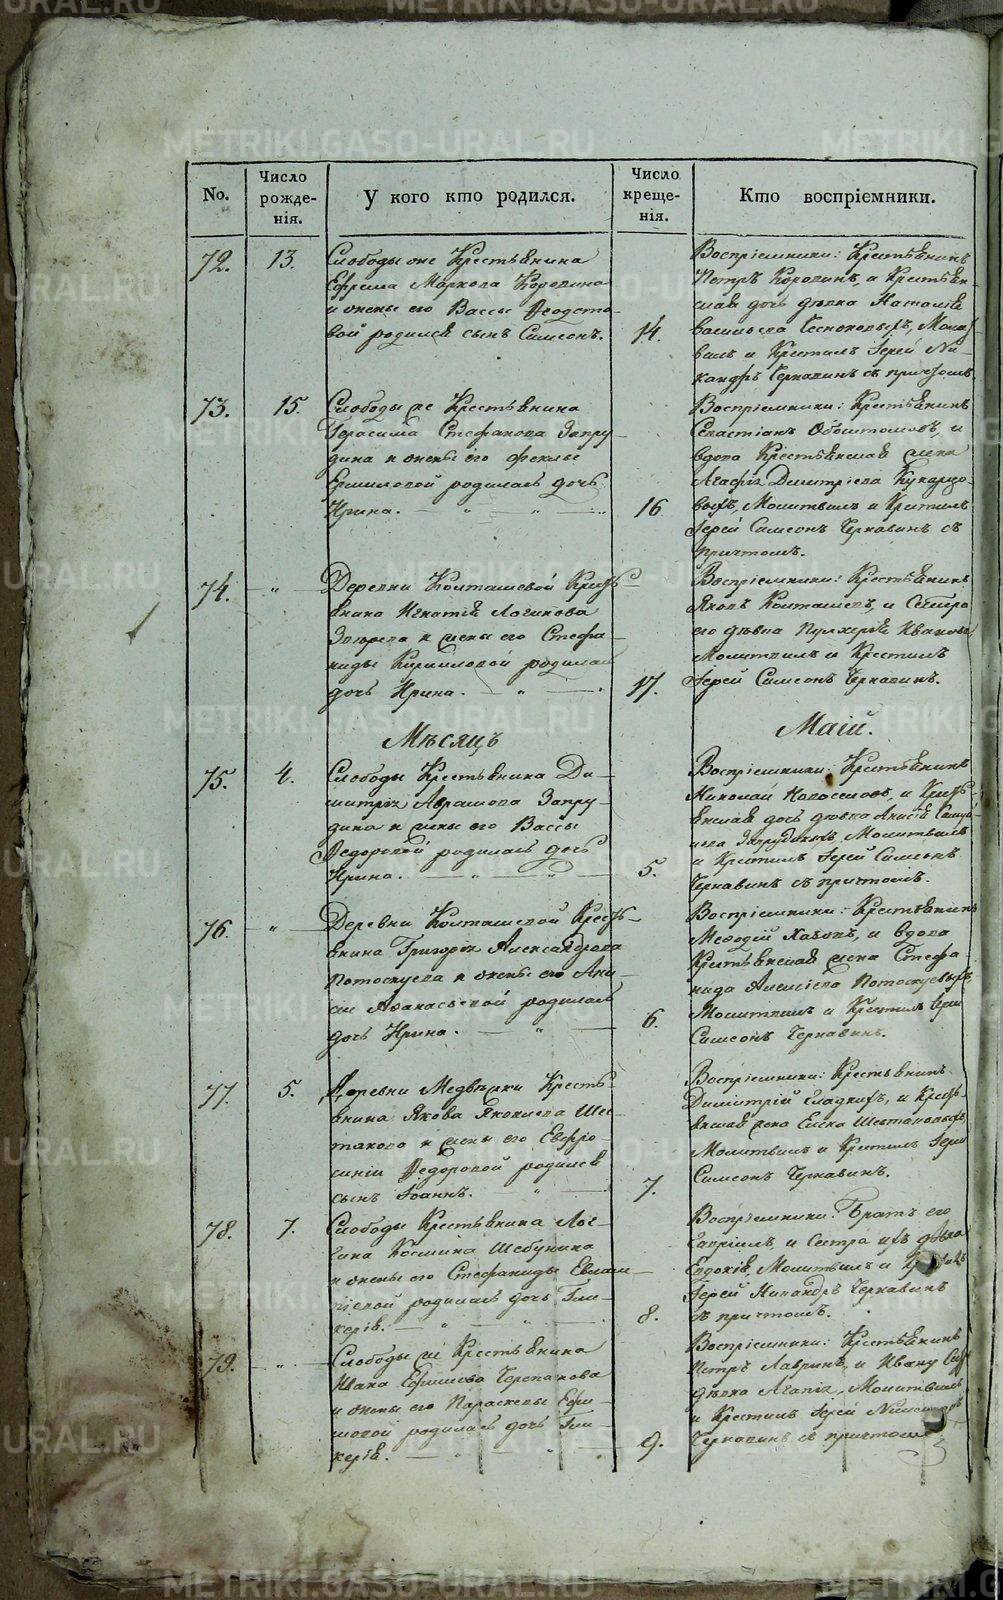 No.
Число рожде-
нія.
У кого кто родился.
Число креще-
нія.
Кто воспріємники.
72.
13.
Слободы оне Крестьянина
Ефрема Маркова Коровина
и жены его Вассы Ѳеодото-
вой родился сынъ Симеонъ.
14.
Воспріемники: Крестьянинъ
Петръ Коровинъ, и Крестьян-
ская дочь дѣвка Наталія
Васильева Молит-
вилъ и Крестилъ Іерей Ни-
кандръ Чернавинъ съ причтомъ.
73.
15.
Слободы се Крестьянина
Герасима Стефанова Запру-
дина и жены его Феклы
Ермиловой родилась дочь
Ирина.
16
Воспріемники: Крестьянинъ
Севастіанъ и
вдова Крестьянская жена
Агафія Димитріева
Молитвилъ и Крестилъ
Іерей Симеонъ Чернавинъ съ
причтомъ.
74.
"
Деревни Колташевой Кресть-
янина Игнатія Логинова
и жены его Стефа-
ниды Кириловой родилась
дочь Ирина.
17.
Воспріемники: Крестьянинъ
Яковъ и Сестра
его дѣвка Пулхерія Иванова
Молитвилъ и Крестилъ
Іерей Симеонъ Чернавинъ.
Мѣсяцъ
Маій.
75.
4.
Слободы Крестьянина Ди-
митрія Аврамова Запру-
дина и жены его Вассы
Ѳедоровой родилась дочь
Ирина.
5.
Воспріемники: Крестьянинъ
Николай Новоселовъ, и Кресть-
янская дочь дѣвка Анисія
Запрудиныхъ, Молитвилъ
и Крестилъ Іерей Симеонъ
Чернавинъ съ причтомъ.
76.
"
Деревни Колташевой Кресть-
янина Григорія Александрова
Потоскуева и жены его Ани-
сіи Аѳанасьевой родилась
дочь Ирина.
6.
Воспріемники: Крестьянинъ
Меѳодій и вдова
Крестьянская жена Стефа-
нида Алексіева Потоскуевыхъ,
Молитвилъ и Крестилъ Іерей
Симеонъ Чернавинъ.
77.
5.
Деревни Медвѣдки Кресть-
янина Якова Яковлева Шес-
такова и жены его Евфро-
синіи Ѳедоровой родился
сынъ Іоаннъ.
7.
Воспріемники: Крестьянинъ
Димитрій Гладкихъ, и Кресть-
янская жена Елена Шестаковыхъ,
Молитвилъ и Крестилъ Іерей
Симеонъ Чернавинъ.
78.
7.
Слободы Крестьянина Лог-
гина Космина Шебунина
и жены его Стефаниды Евлам-
піевой родилась дочь Гли-
керія.
8.
Воспріемники: Братъ его
Гавріилъ, и Сестра ихъ дѣвка
Евдокія, Молитвилъ и
Іерей Никандръ Чернавинъ
съ причтомъ.
79.
"
Слободы се Крестьянина
Ивана Ефимова Черепанова
и жены его Параскевы Ефи-
мовой родилась дочь Гли-
керія.
9.
Воспріемники: Крестьянинъ
Петръ Лавринъ, и Ивану
дѣвка Агапія, Молитвилъ
и Крестилъ Іерей Никандръ
Чернавинъ съ причтомъ
METRIKI.GASO-URAL.RU